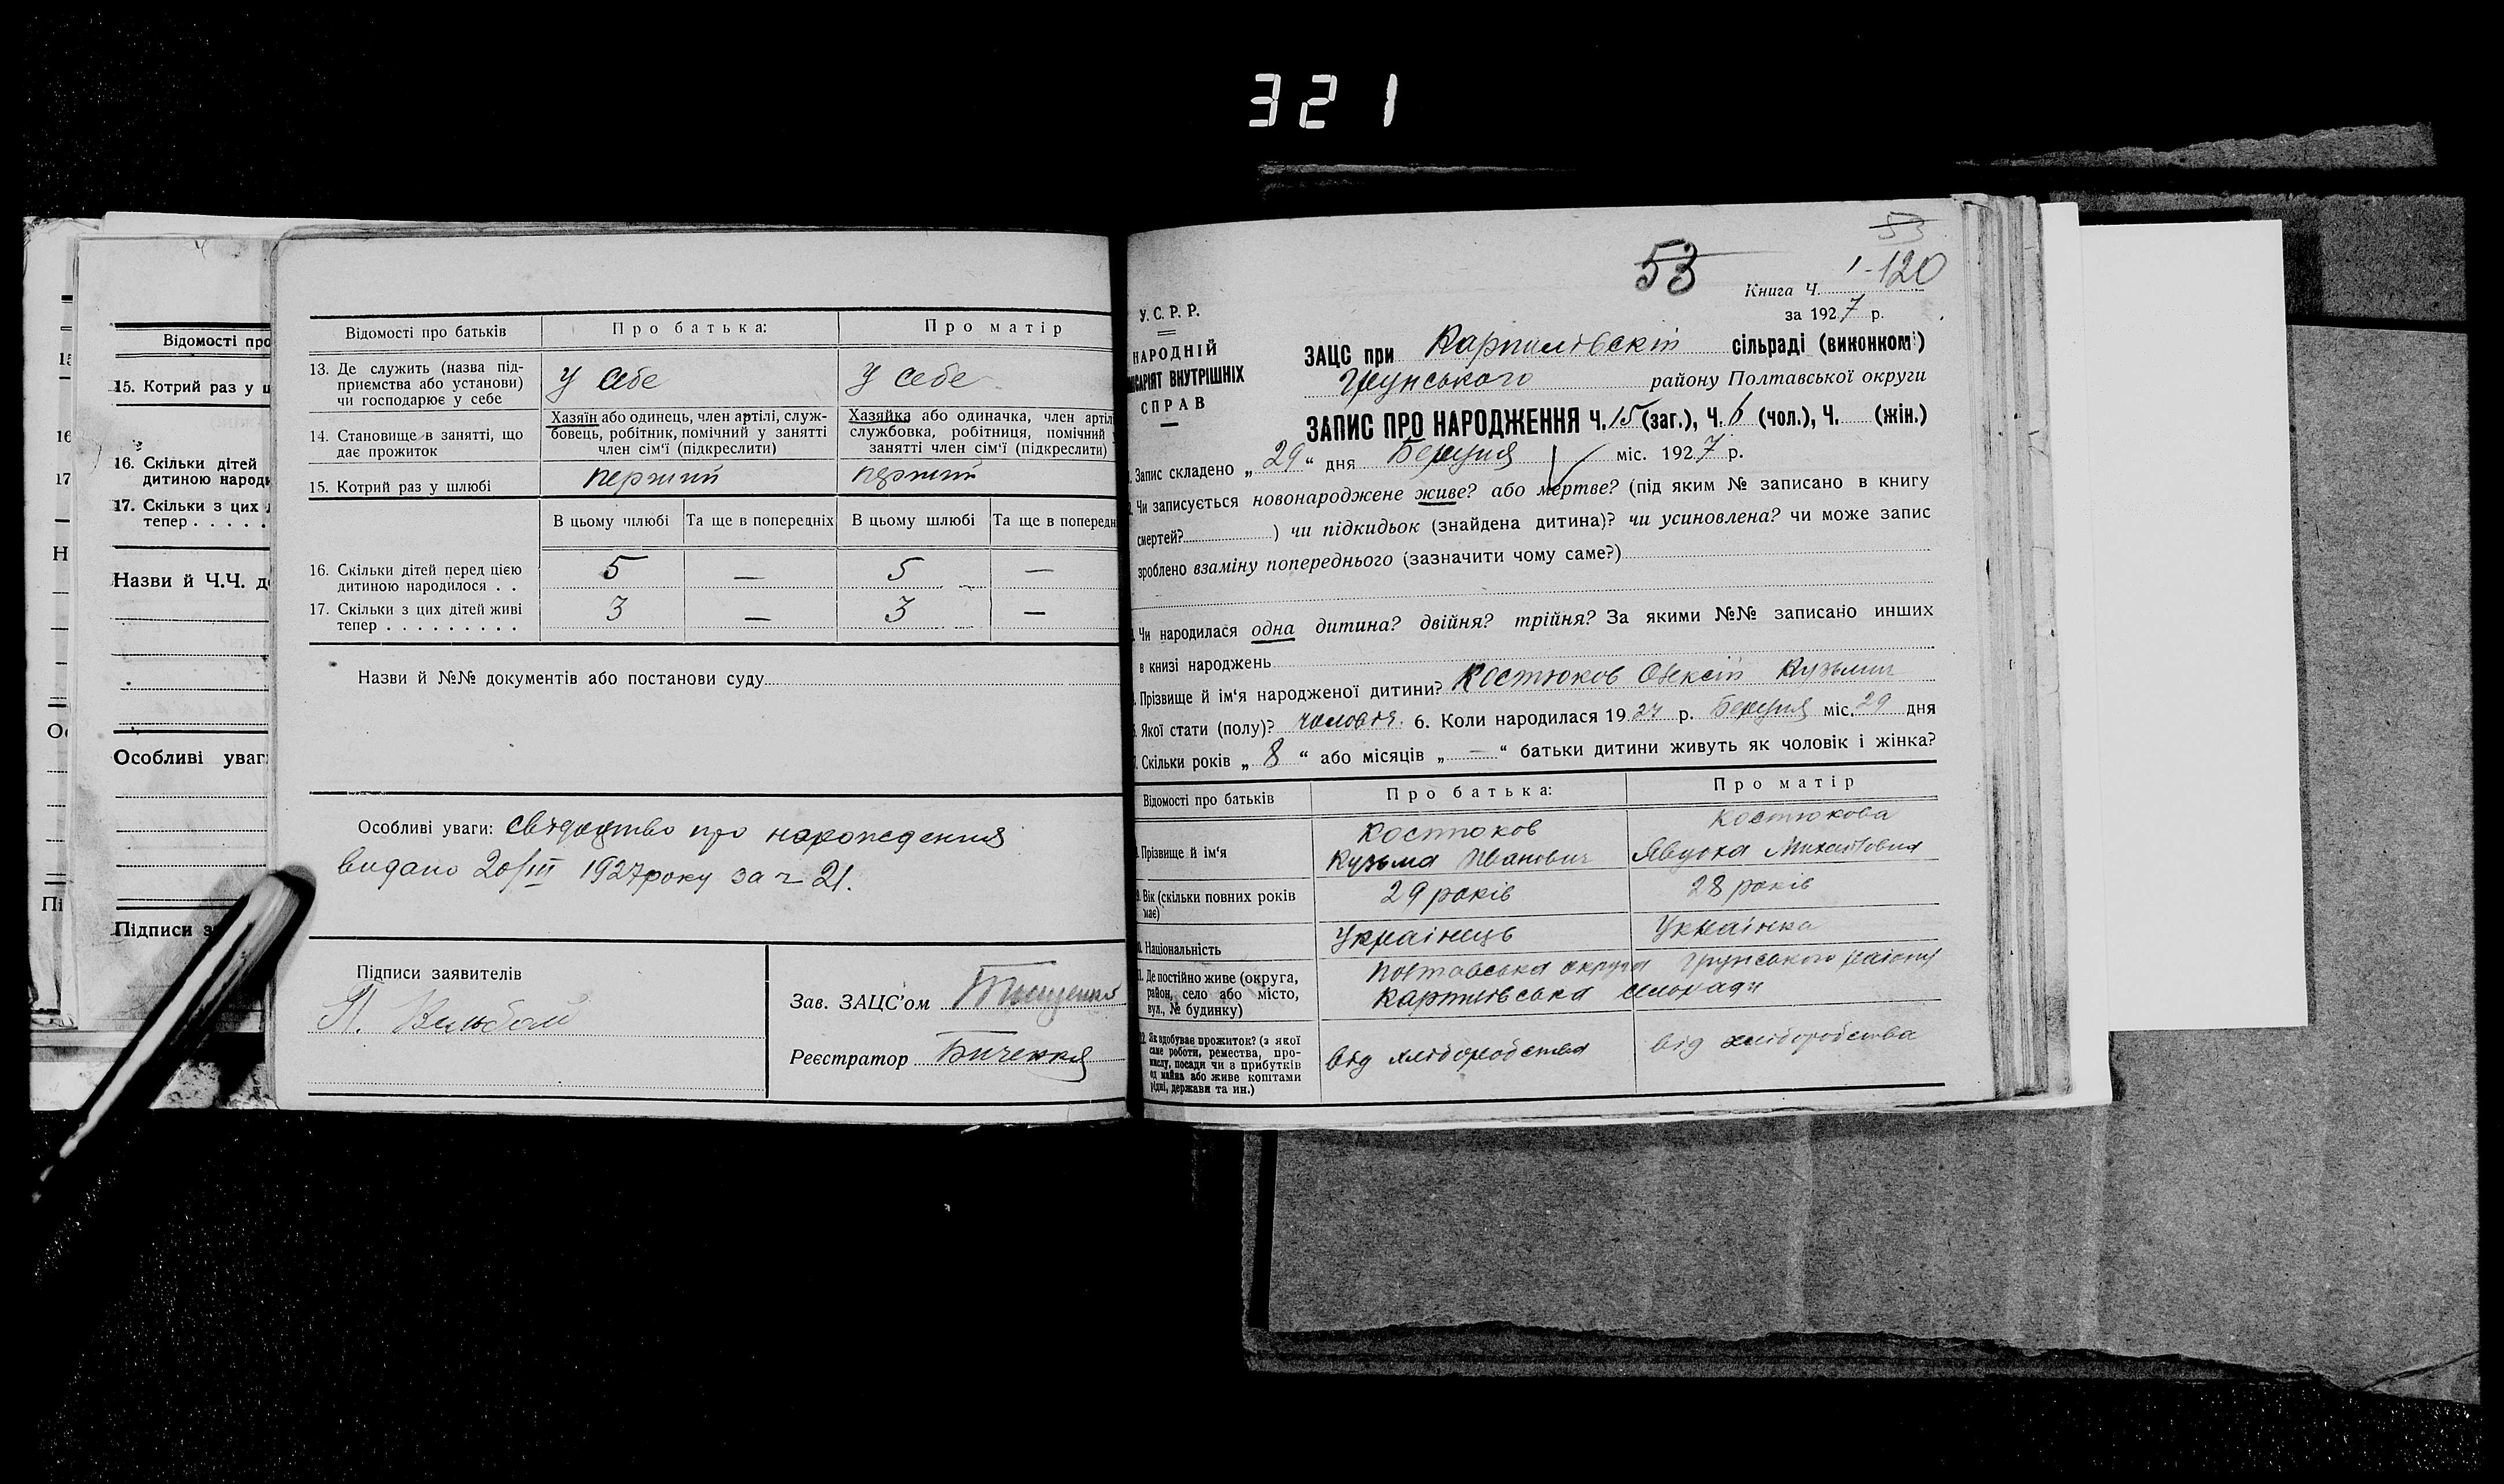 321
Відомості про батьків
Про батька:
Про матір
13. Де служить (назва під-
приємства або установи)
чи господарює у себе
у себе
у себе
14. Становище в занятті, що
дає прожиток
Хазяїн або одинець, член артілі, служ-
бовець, робітник, помічний у занятті
член сім'ї (підкреслити)
Хазяйка або одиначка, член артіл
службовка, робітниця, помічний
занятті член сім'ї (підкреслити)
15. Котрий раз у шлюбі
перший
перший
В цьому шлюбі
Та ще в попередніх
В цьому шлюбі
Та ще в попередн
16. Скільки дітей перед цією
дитиною народилося . .
5 — 5 —
17. Скільки з цих дітей живі
тепер . . . . . . . . .
3 — 3 —
Назви й №№ документів або постанови суду
Особливі уваги: свідоцтво про нарождения
видано 20/III 1927 року за ч 21.
Підписи заявителів
Зав. ЗАЦС'ом
Реєстратор
Відомості про
15. Котрий раз у ш
16. Скільки дітей
дитиною народи
17. Скільки з цих
тепер . . . . .
Назви й Ч.Ч. д
Особливі уваг
Підписи з
53
53
Книга Ч. 1-120
за 1927 р.
У.С.Р.Р.
НАРОДНІЙ
КОМІСАРІЯТ ВНУТРІШНІХ
СПРАВ
ЗАЦС при Карпилівскій сільраді (виконкомі)
Грунського району Полтавської округи
ЗАПИС ПРО НАРОДЖЕННЯ Ч. 15 (заг.), Ч. 6 (чол.), Ч. (жін.)
Запис складено „29“ дня Березня міс. 1927 р.
Чи записується новонароджене живе? або мертве? (під яким № записано в книгу
смертей? ) чи підкидьок (знайдена дитина)? чи усиновлена? чи може запис
зроблено взаміну попереднього (зазначити чому саме?)
Чи народилася одна дитина? двійня? трійня? За якими №№ записано инших
в книзі народжень
Прізвище й ім'я народженої дитини? Костюков Олексій Кузьмич
Якої стати (полу)? чоловіч. 6. Коли народилася 1927 р. Березня міс. 29 дня
Скільки років „8“ або місяців „—“ батьки дитини живуть як чоловік і жінка?
Відомості про батьків
Про батька:
Про матір
Прізвище й ім'я
Костюков
Кузьма Иванович
Костюкова
Явдоха Михайловна
9. Вік (скільки повних років
має)
29 років
28 років
Національність
Українець
Українка
11. Де постійно живе (округа,
район, село або місто,
вул., № будинку)
Полтавська округа Грунського району
Карпилівська селорада
Як здобуває прожиток? (з якої
саме роботи, ремества, про-
мислу, посади чи з прибутків
од майна або живе коштами
рідні, держави та ин.)
від хліборобства
від хліборобства